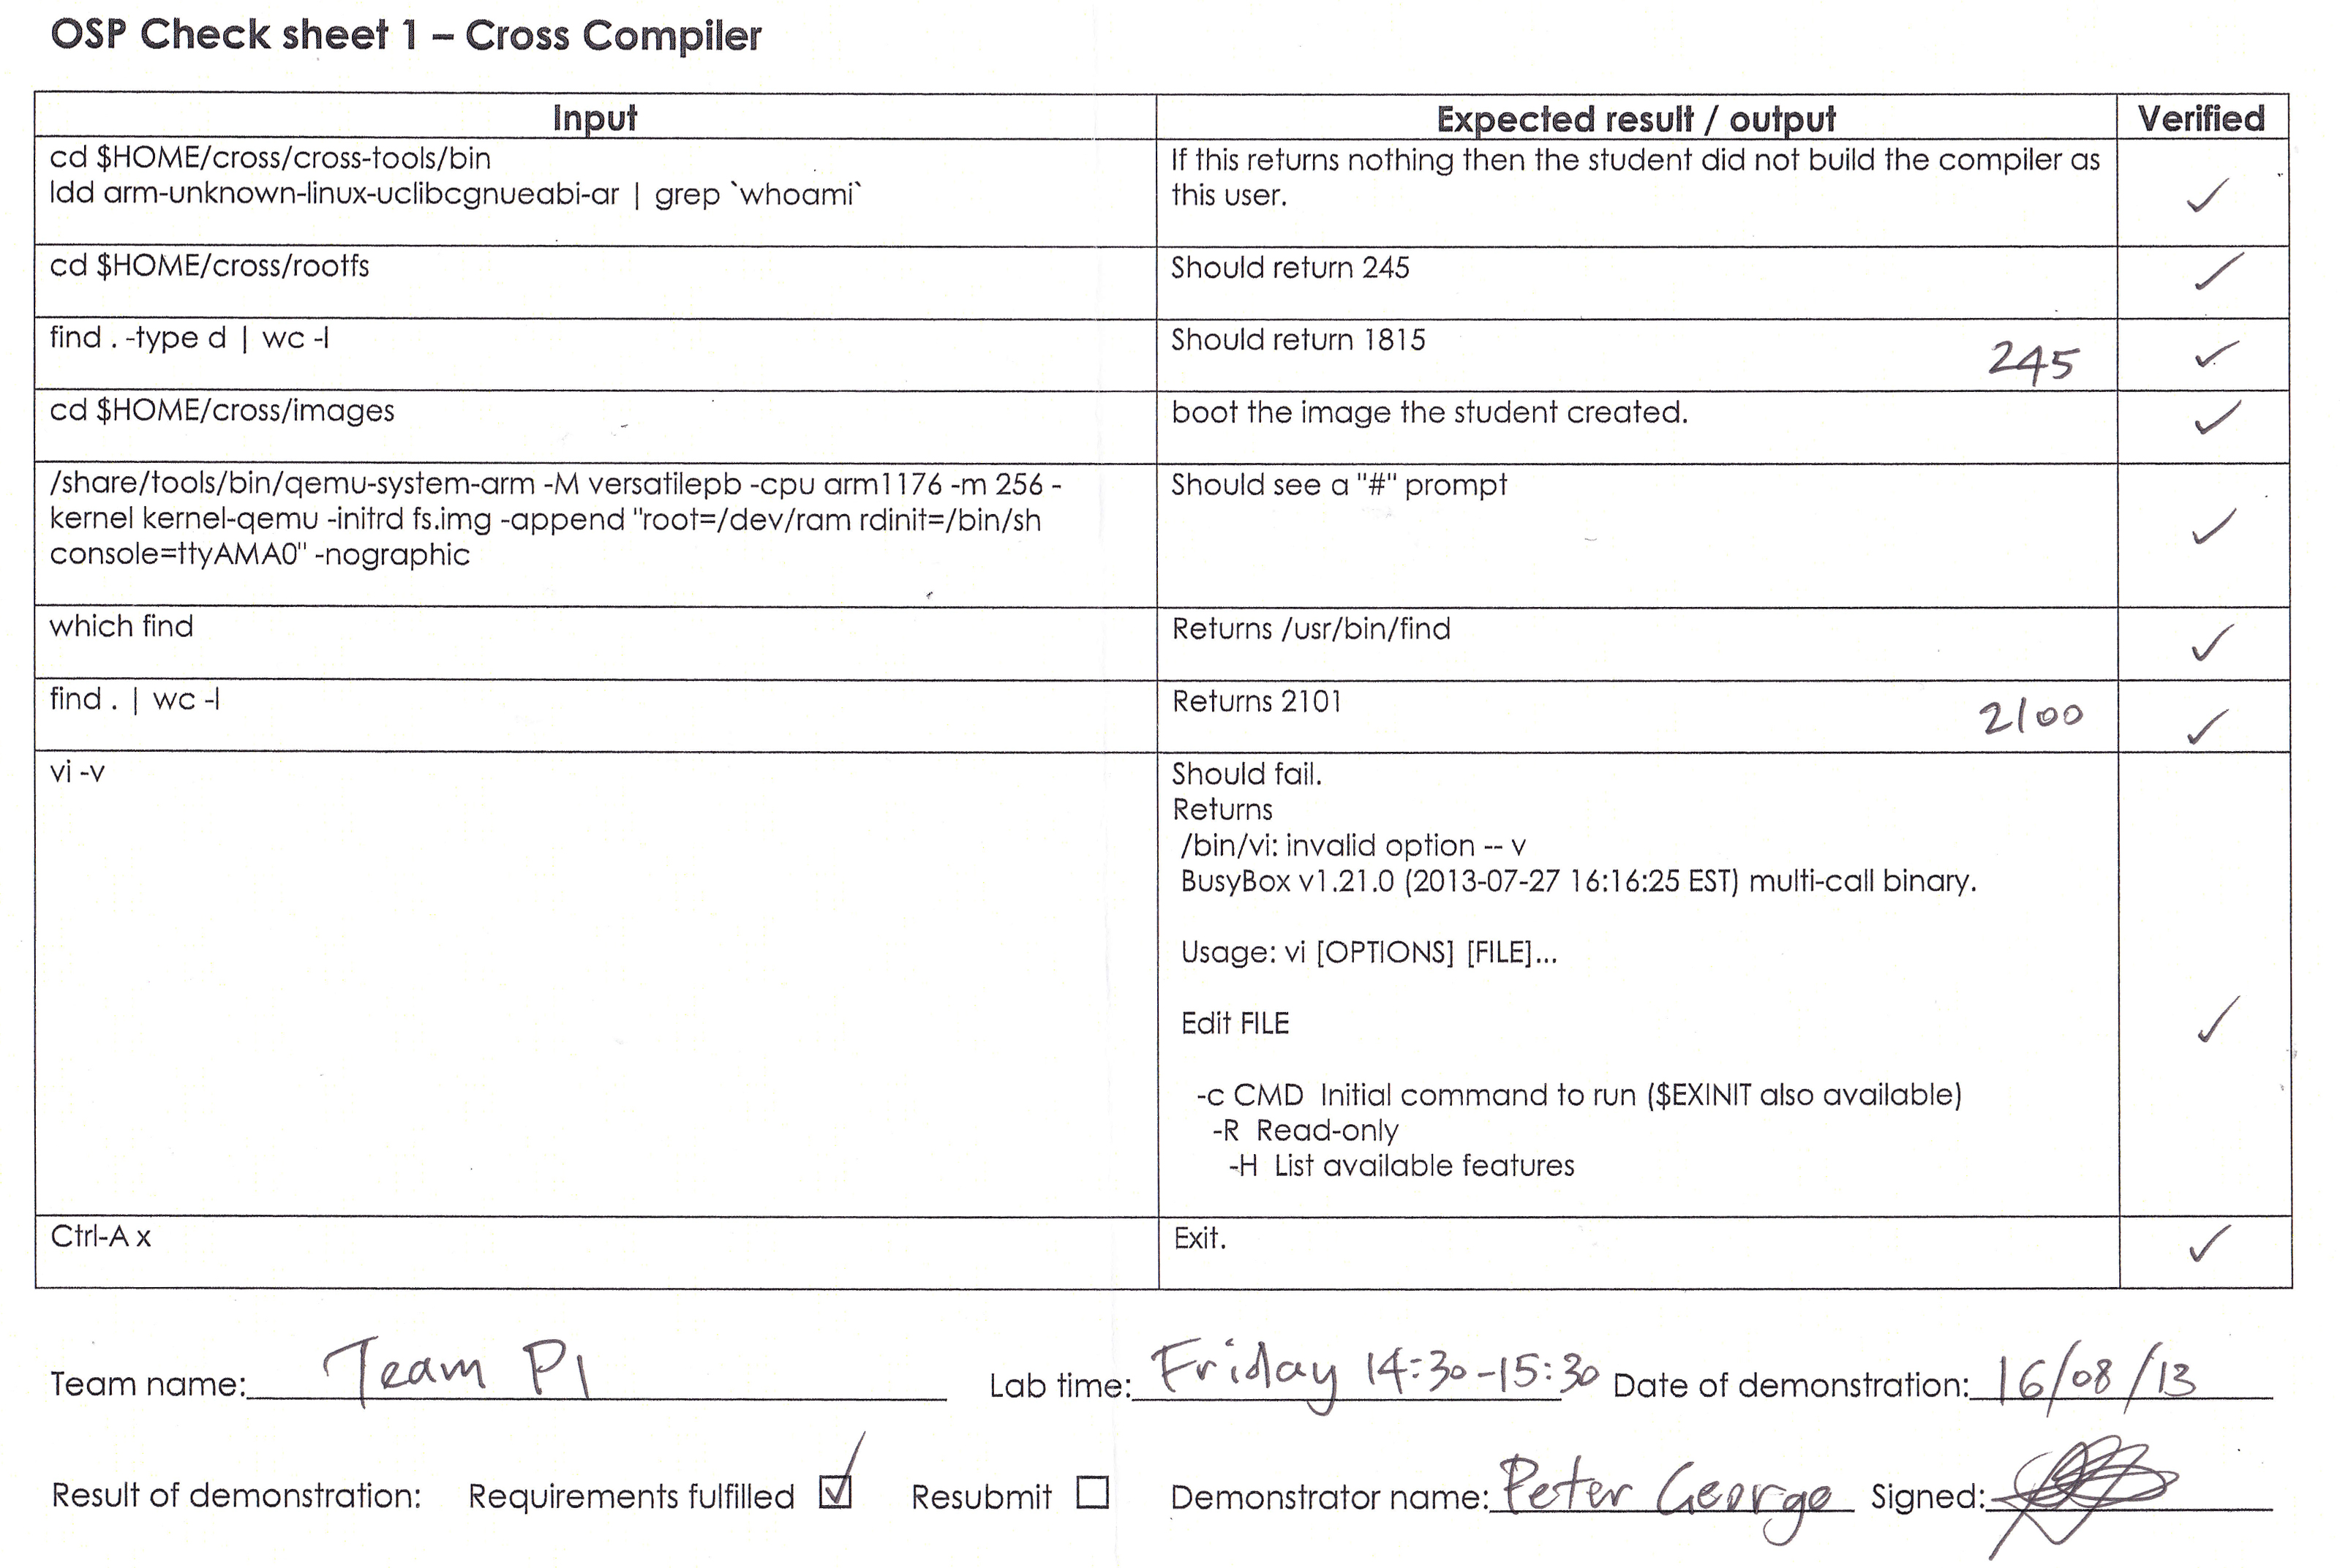 OSP Check sheet 1 – Cross Compiler
Input Expected result / output Verified
cd $HOME/cross/cross-tools/bin
ldd arm-unknown-linux-uclibcgnueabi-ar | grep `whoami`
If this returns nothing then the student did not build the compiler as
this user.
✓
cd $HOME/cross/rootfs
Should return 245
✓
find . -type d | wc -l
Should return 1815
245
✓
cd $HOME/cross/images
boot the image the student created.
✓
/share/tools/bin/qemu-system-arm -M versatilepb -cpu arm1176 -m 256 -
kernel kernel-qemu -initrd fs.img -append "root=/dev/ram rdinit=/bin/sh
console=ttyAMA0" -nographic
Should see a "#" prompt
✓
which find
Returns /usr/bin/find
✓
find . | wc -l
Returns 2101
2100
✓
vi -v
Should fail.
Returns
/bin/vi: invalid option -- v
BusyBox v1.21.0 (2013-07-27 16:16:25 EST) multi-call binary.
Usage: vi [OPTIONS] [FILE]...
Edit FILE
-c CMD Initial command to run ($EXINIT also available)
-R Read-only
-H List available features
✓
Ctrl-A x
Exit.
✓
Team name: Team PI Lab time: Friday 14:30-15:30 Date of demonstration: 16/08/13
Result of demonstration: Requirements fulfilled ☑ Resubmit ☐ Demonstrator name: Peter George Signed: